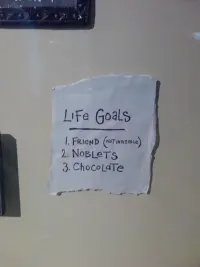 LIFE GOALS
1. FRIEND (NOT INVISIBLE)
2. NOBLETS
3. CHOCOLATE